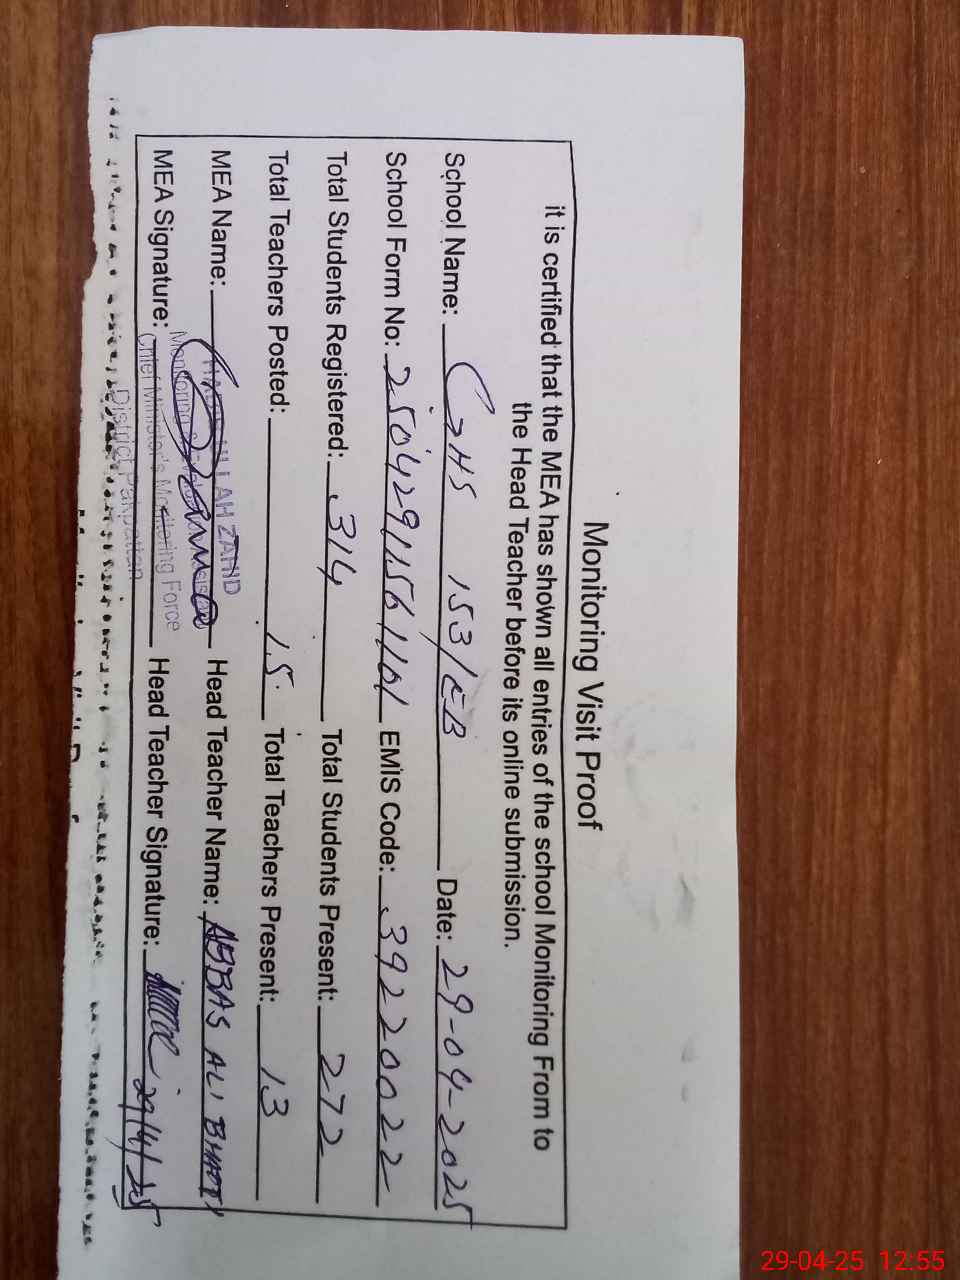 Monitoring Visit Proof
it is certified that the MEA has shown all entries of the school Monitoring From to
the Head Teacher before its online submission.
School Name: GHS 153/EB Date: 29-04-2025
School Form No: 25042911561101 EMIS Code: 39220022
Total Students Registered: 314 Total Students Present: 272
Total Teachers Posted: 15 Total Teachers Present: 13
MEA Name: Head Teacher Name: ABBAS ALI BHATTI
MEA Signature: Head Teacher Signature: 29/4/25
ULLAH ZAHID
Monitoring
Chief Minister's Monitoring Force
District Pakpattan
29-04-25 12:55